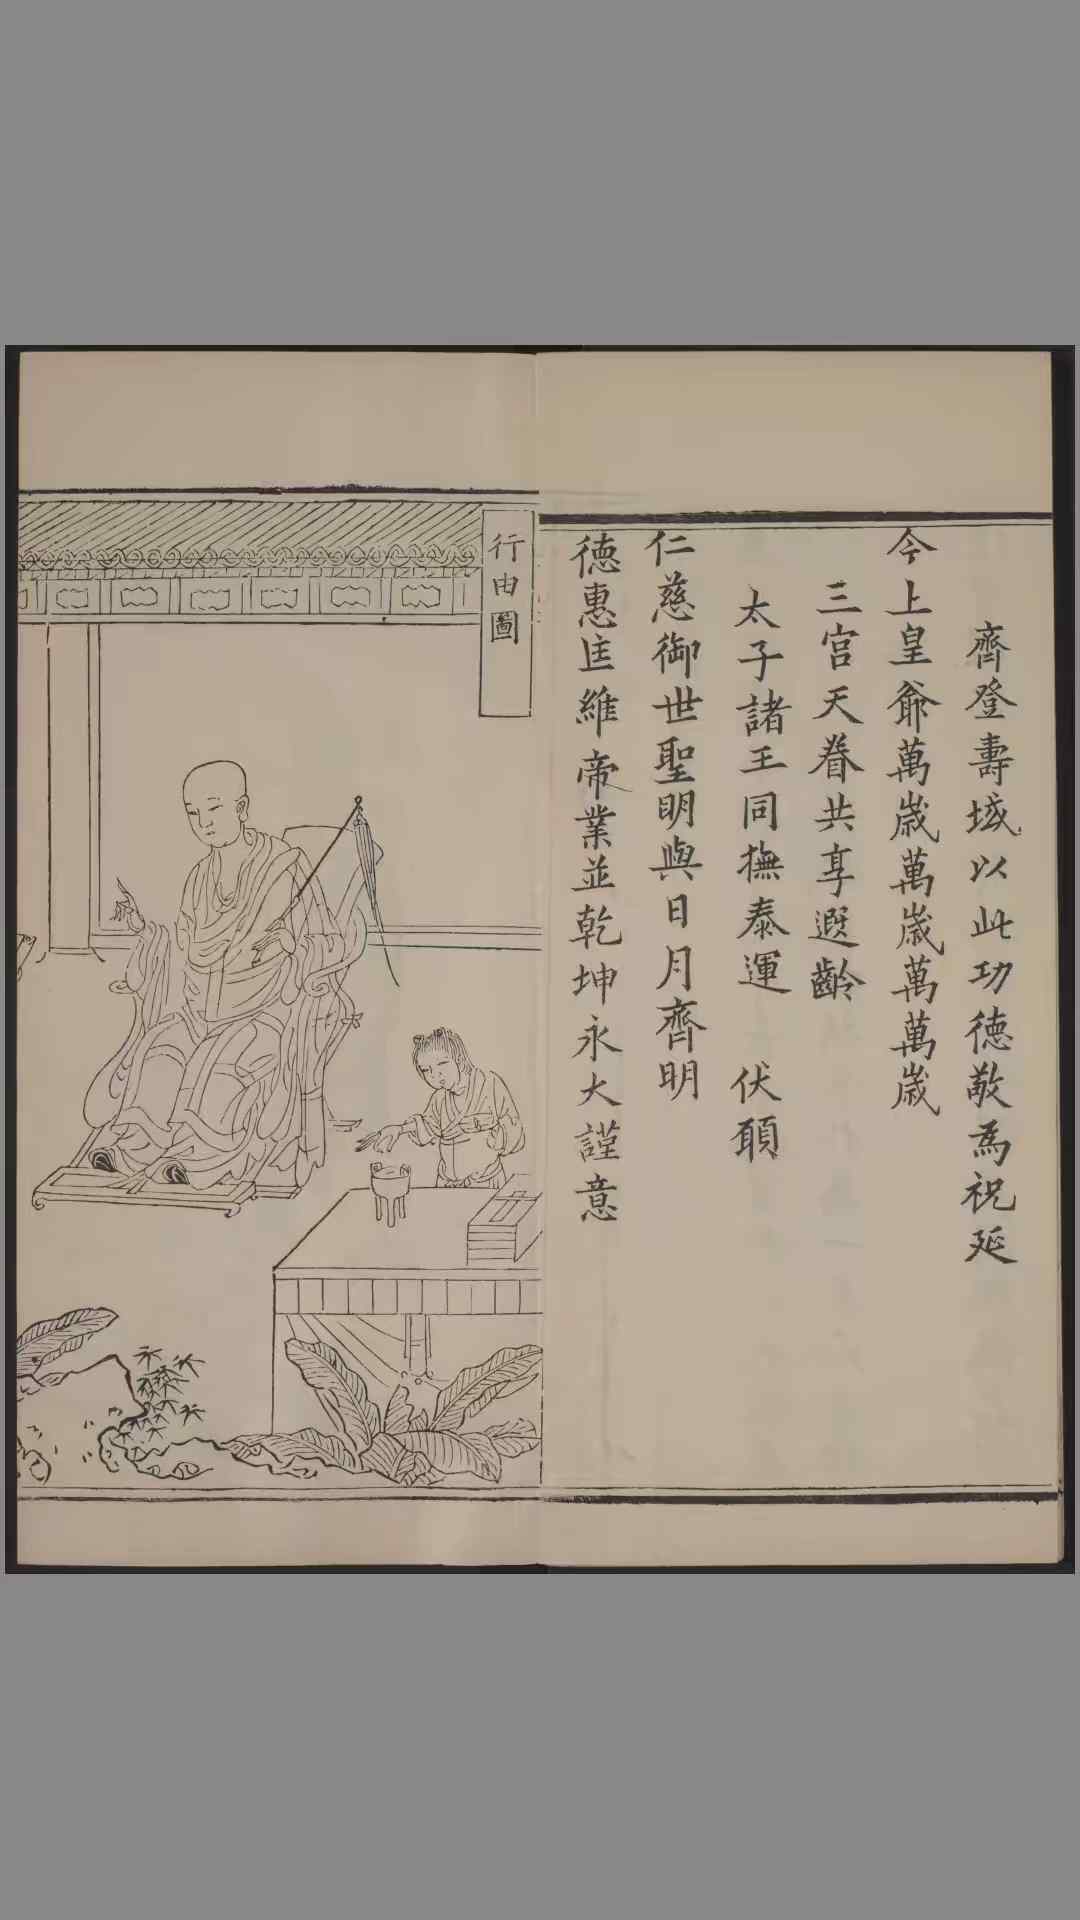 齊登壽域以此功德敬為祝延
今上皇爺萬歲萬歲萬萬歲
三宮天眷共享遐齡
太子諸王同撫泰運 伏願
仁慈御世聖明與日月齊明
德惠匡維帝業並乾坤永大謹意
行由圖